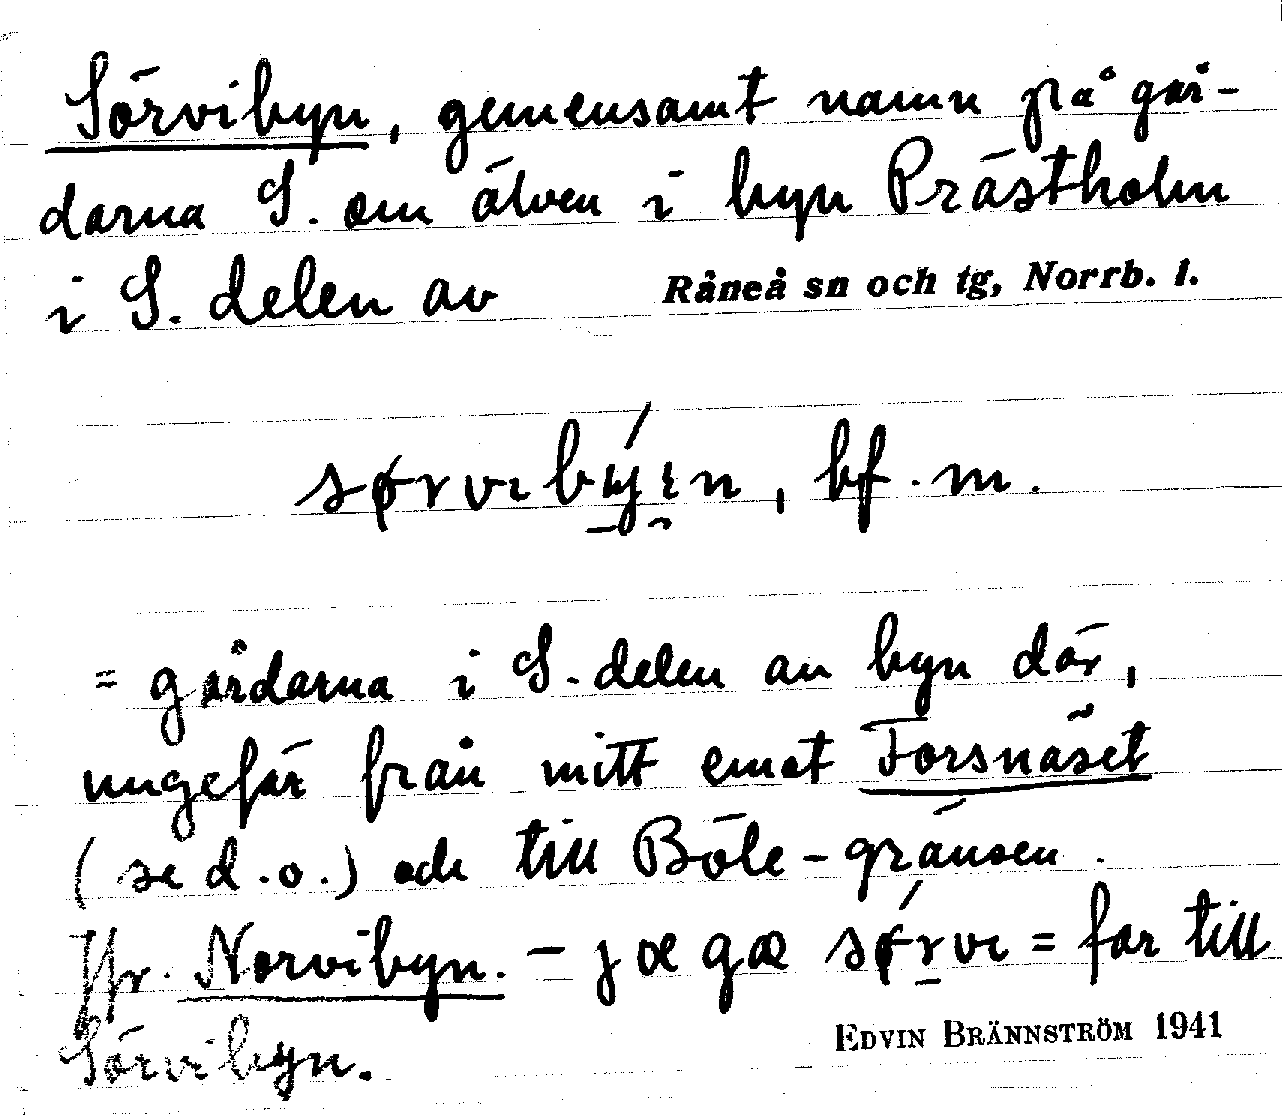 Sörvibyn, gemensamt namn på går-
darna S. om älven i byn Prästholm
i S. delen av Råneå sn och tg, Norrb. l.
sørvibýɩn, bf. m.
= gårdarna i S. delen av byn där,
ungefär från mitt emot Forsnäset
(se d.o.) och till Böle-gränsen.
Jfr. Norvibyn. – gæ sǿrvi = far till
Sörvibyn.
EDVIN BRÄNNSTRÖM 1941